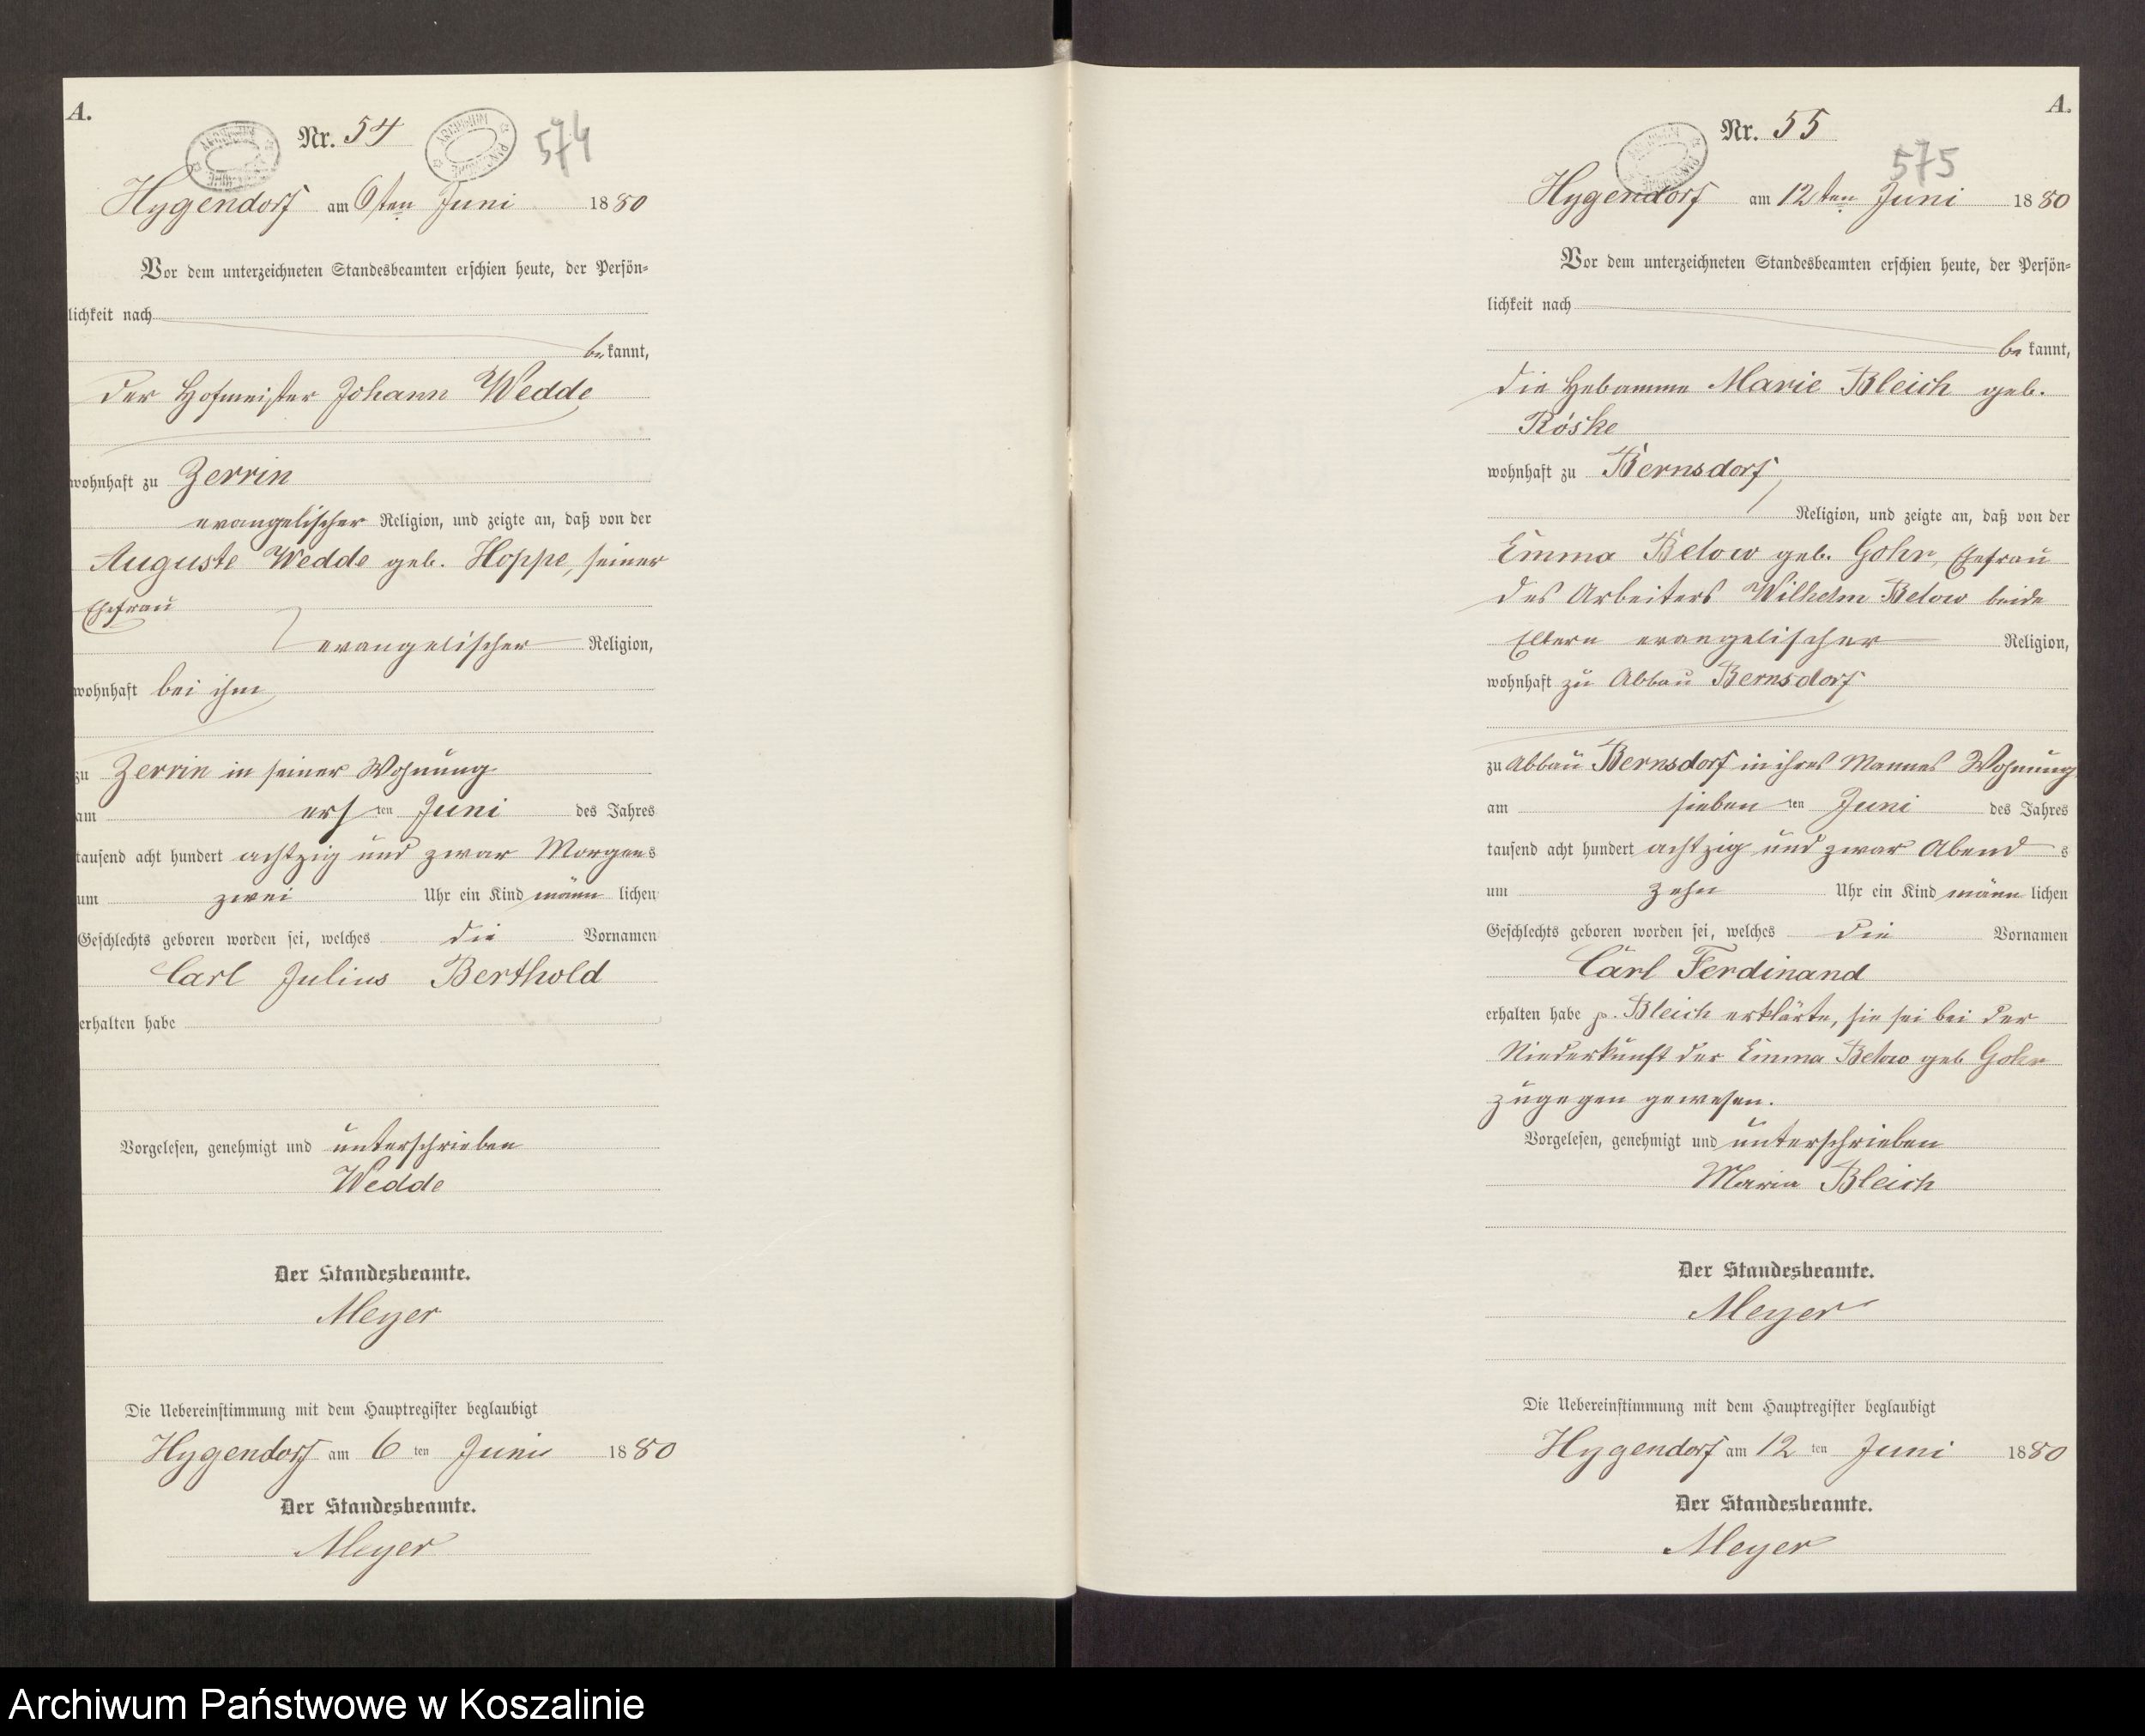 A.
Nr. 54
574
Hygendorf am 6ten Juni 1880
Vor dem unterzeichneten Standesbeamten erschien heute, der Persön=
lichkeit nach
bekannt,
der Hofmeister Johann Wedde
wohnhaft zu Zerrin
evangelischer Religion, und zeigte an, daß von der
Auguste Wedde geb. Hoppe, seiner
Ehefrau
evangelischer Religion,
wohnhaft bei ihm
zu Zerrin in seiner Wohnung
am ersten Juni des Jahres
tausend acht hundert achtzig und zwar Morgens
um zwei Uhr ein Kind männlichen
Geschlechts geboren worden sei, welches die Vornamen
Carl Julius Berthold
erhalten habe
Vorgelesen, genehmigt und unterschrieben
Wedde
Der Standesbeamte.
Meyer
Die Uebereinstimmung mit dem Hauptregister beglaubigt
Hygendorf am 6ten Juni 1880
Der Standesbeamte.
Meyer
A.
Nr. 55
575
Hygendorf am 12ten Juni 1880
Vor dem unterzeichneten Standesbeamten erschien heute, der Persön=
lichkeit nach
bekannt,
die Hebamme Marie Bleich geb.
Röske
wohnhaft zu Bernsdorf
Religion, und zeigte an, daß von der
Emma Below geb. Gohr, Ehefrau
des Arbeiters Wilhelm Below beide
Eltern evangelischer Religion,
wohnhaft zu Abbau Bernsdorf
zu Abbau Bernsdorf in ihres Mannes Wohnung
am siebenten Juni des Jahres
tausend acht hundert achtzig und zwar Abends
um zehn Uhr ein Kind männlichen
Geschlechts geboren worden sei, welches die Vornamen
Carl Ferdinand
erhalten habe p. Bleich erklärte, sie sei bei der
Niederkunft der Emma Below geb Gohr
zugegen gewesen.
Vorgelesen, genehmigt und unterschrieben
Maria Bleich
Der Standesbeamte.
Meyer
Die Uebereinstimmung mit dem Hauptregister beglaubigt
Hygendorf am 12ten Juni 1880
Der Standesbeamte.
Meyer
Archiwum Państwowe w Koszalinie